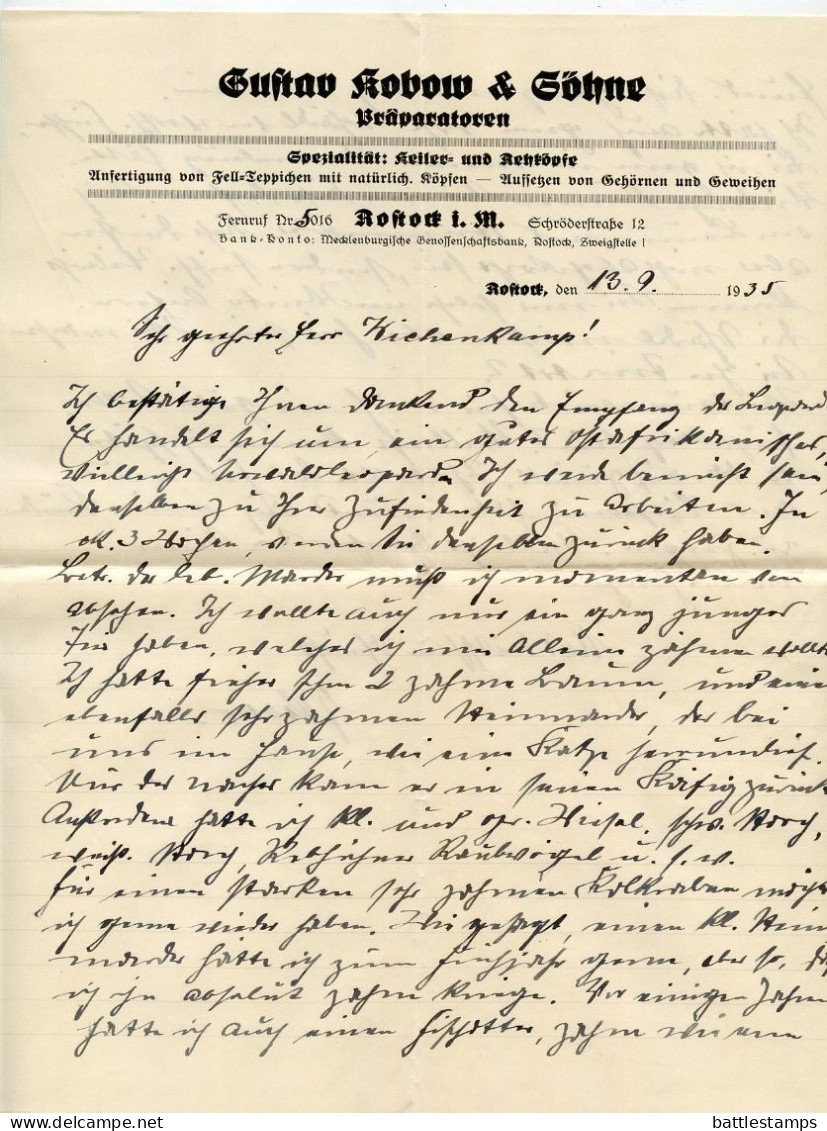 Gustav Kobow & Söhne
Präparatoren
Spezialität: Keiler- und Rehköpfe
Anfertigung von Fell-Teppichen mit natürlich. Köpfen — Aufsetzen von Gehörnen und Geweihen
Fernruf Nr. 5016 Rostock i. M. Schröderstraße 12
Bank-Konto: Mecklenburgische Genossenschaftsbank, Rostock, Zweigstelle I
Rostock, den 13. 9. 1935
Sehr geehrter Herr Wiehenkamp!
Ich bestätige Ihnen dankend den Empfang des Leopard
Es handelt sich um ein guter ostafrikanischer,
vielleicht Urwaldleopard. Ich werde bemüht sein,
denselben zu Ihrer Zufriedenheit zu arbeiten. In
ca. 3 Wochen werden Sie denselben zurück haben.
Betr. der leb. Marder muß ich momentan von
absehen. Ich wollte auch nur ein ganz junges
Tier haben, welches ich mir allein zähmen wollte
Ich hatte früher schon 2 zahme Baum, und einen
ebenfalls sehr zahmen Steinmarder, der bei
uns im Hause, wie eine Katze herrumlief.
Nur des nachts kam er in seinen Käfig zurück
Außerdem hatte ich kl. und gr. Wiesel, schw. Storch,
weiß. Storch, Rebhühner Raubvögel u. s. w.
Für einen starken sehr zahmen Kolkraben möcht
ich gerne wieder haben. Wie gesagt, einen kl. Stein
marder hätte ich zum Frühjahr gerne, aber so, daß
ich ihn absolut zahm kriege. Vor einigen Jahren
hatte ich auch einen Fischotter, zahm wie eine
battlestamps